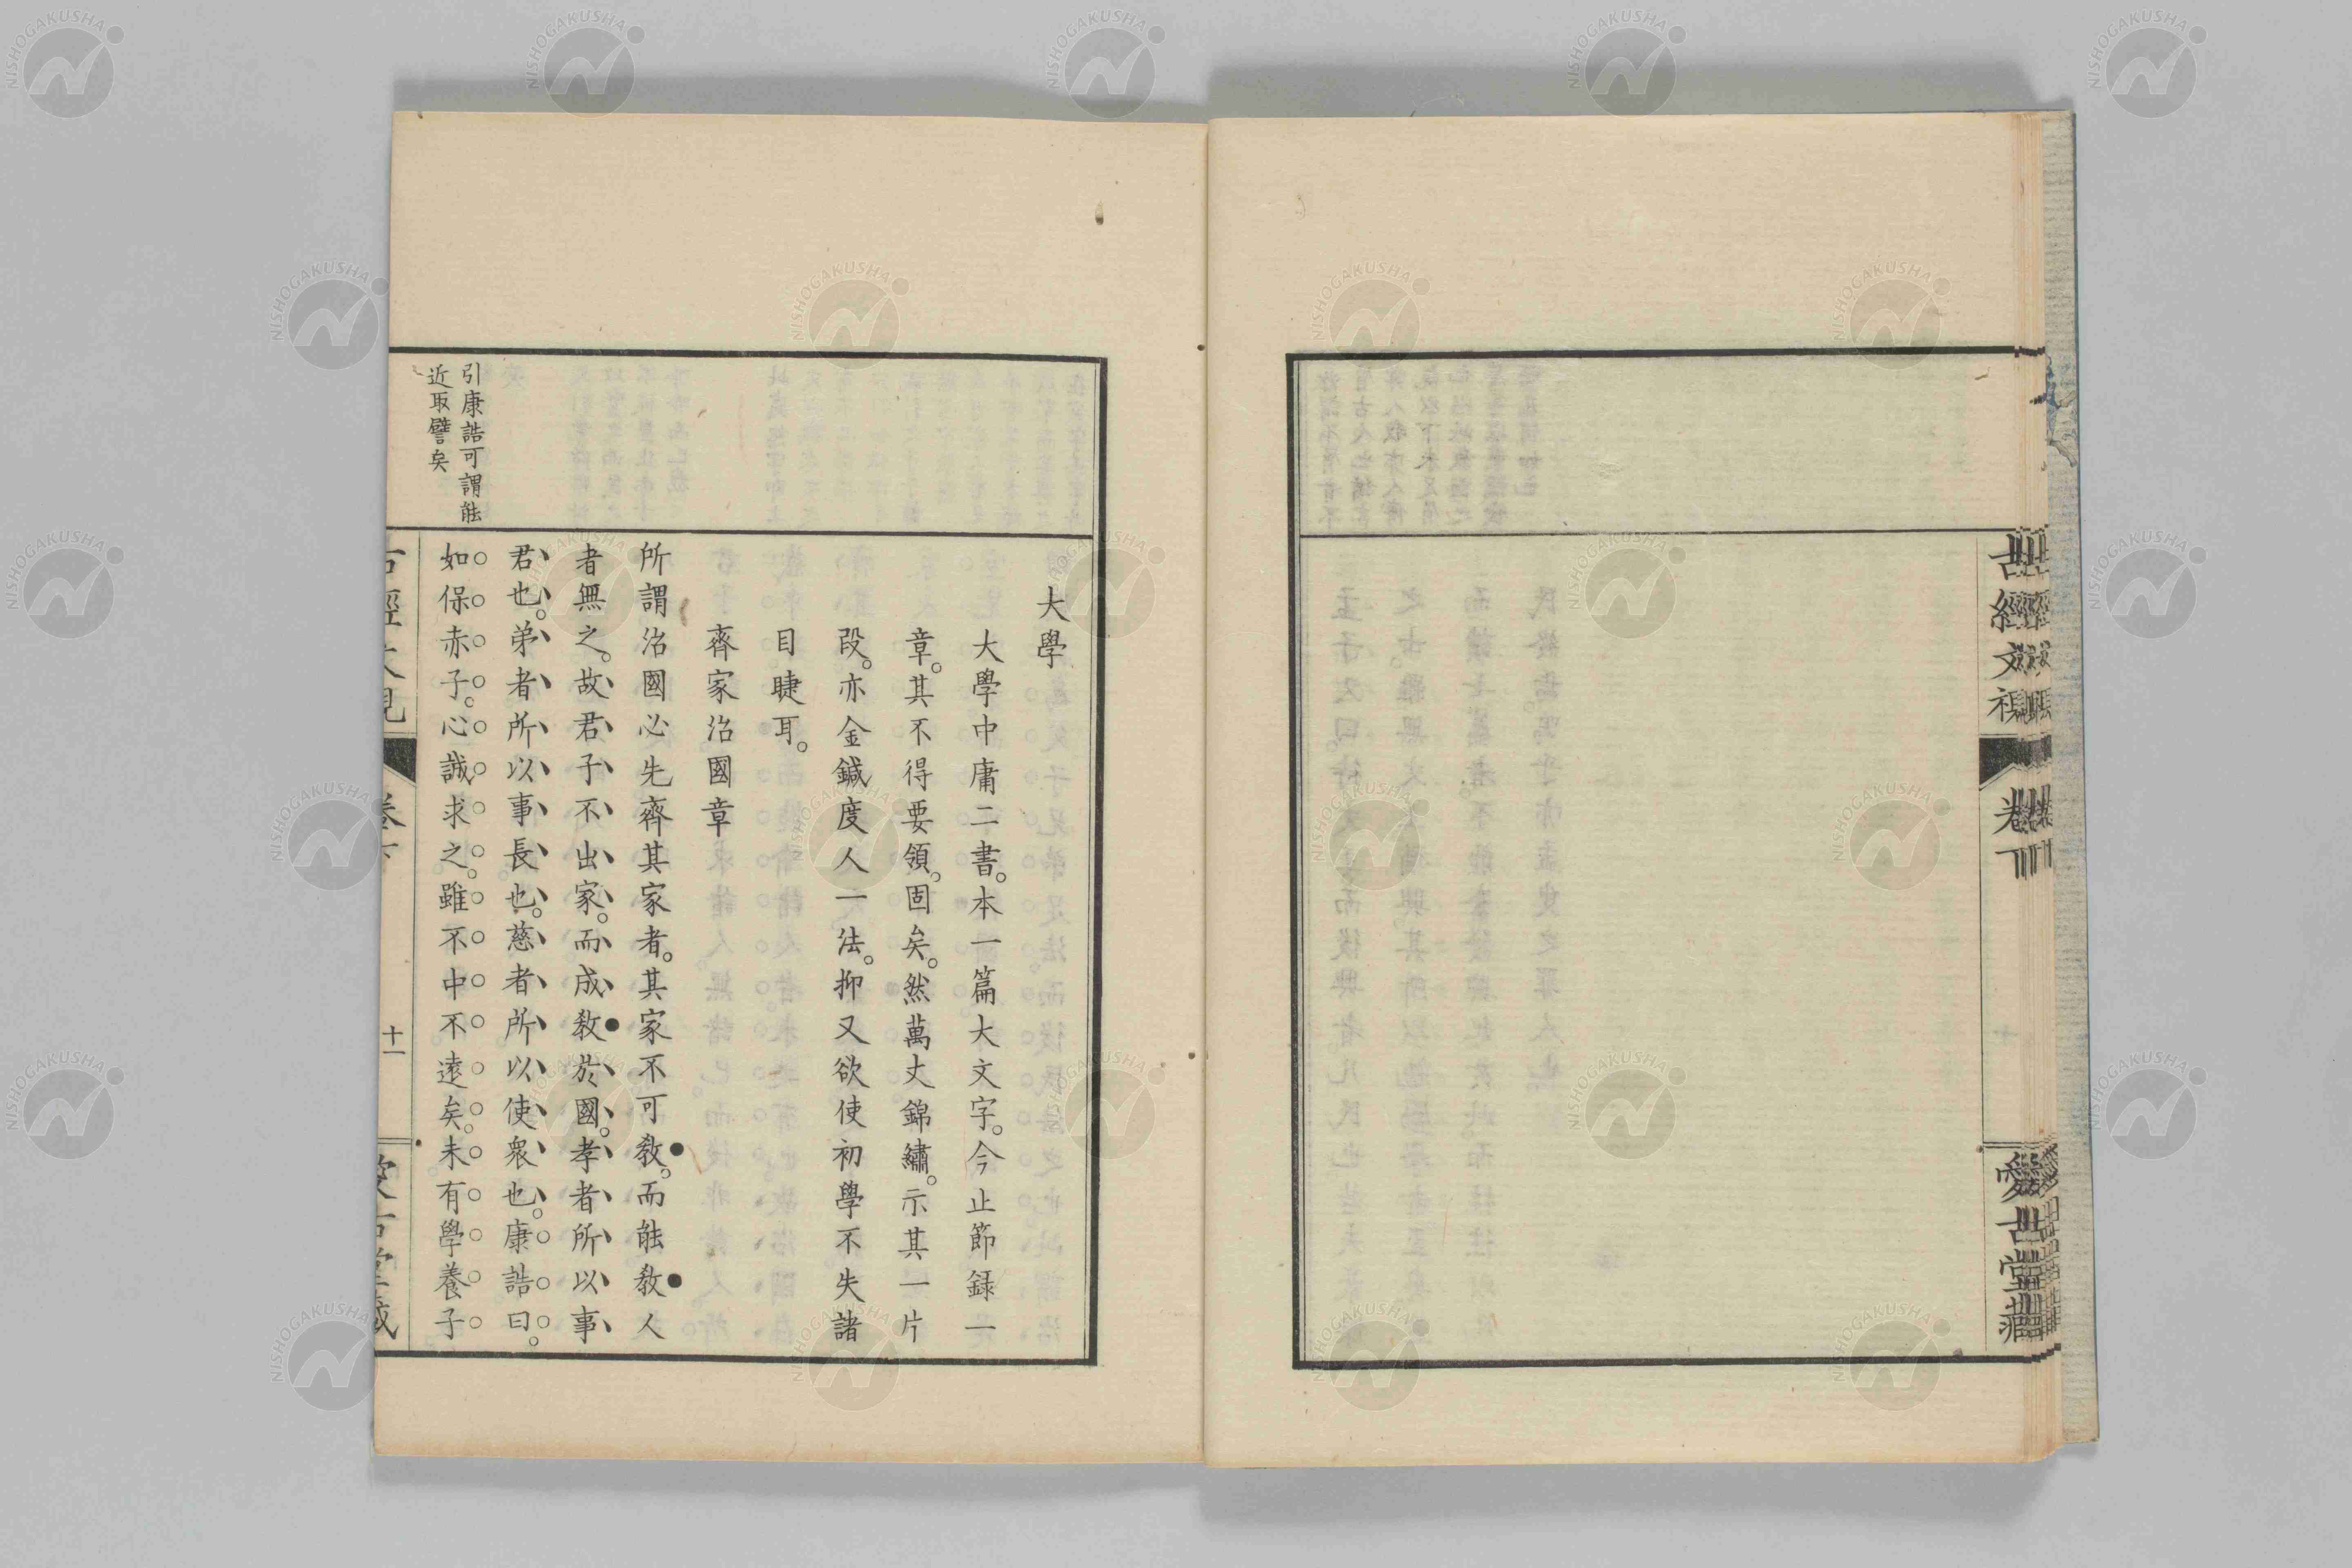 古經文視
卷下
愛古堂藏
大學
大學中庸二書。本一篇大文字。今止節録一
章。其不得要領。固矣。然萬丈錦繡。示其一片
段。亦金鍼度人一法。抑又欲使初學不失諸
目睫耳。
齊家治國章
所謂治國必先齊其家者。其家不可教。而能教人
者無之。故君子不出家。而成教於國。孝者所以事
君也。弟者所以事長也。慈者所以使衆也。康誥曰。
如保赤子。心誠求之。雖不中不遠矣。未有學養子
引康誥可謂能
近取譬矣
卷下
十一
NISHOGAKUSHA